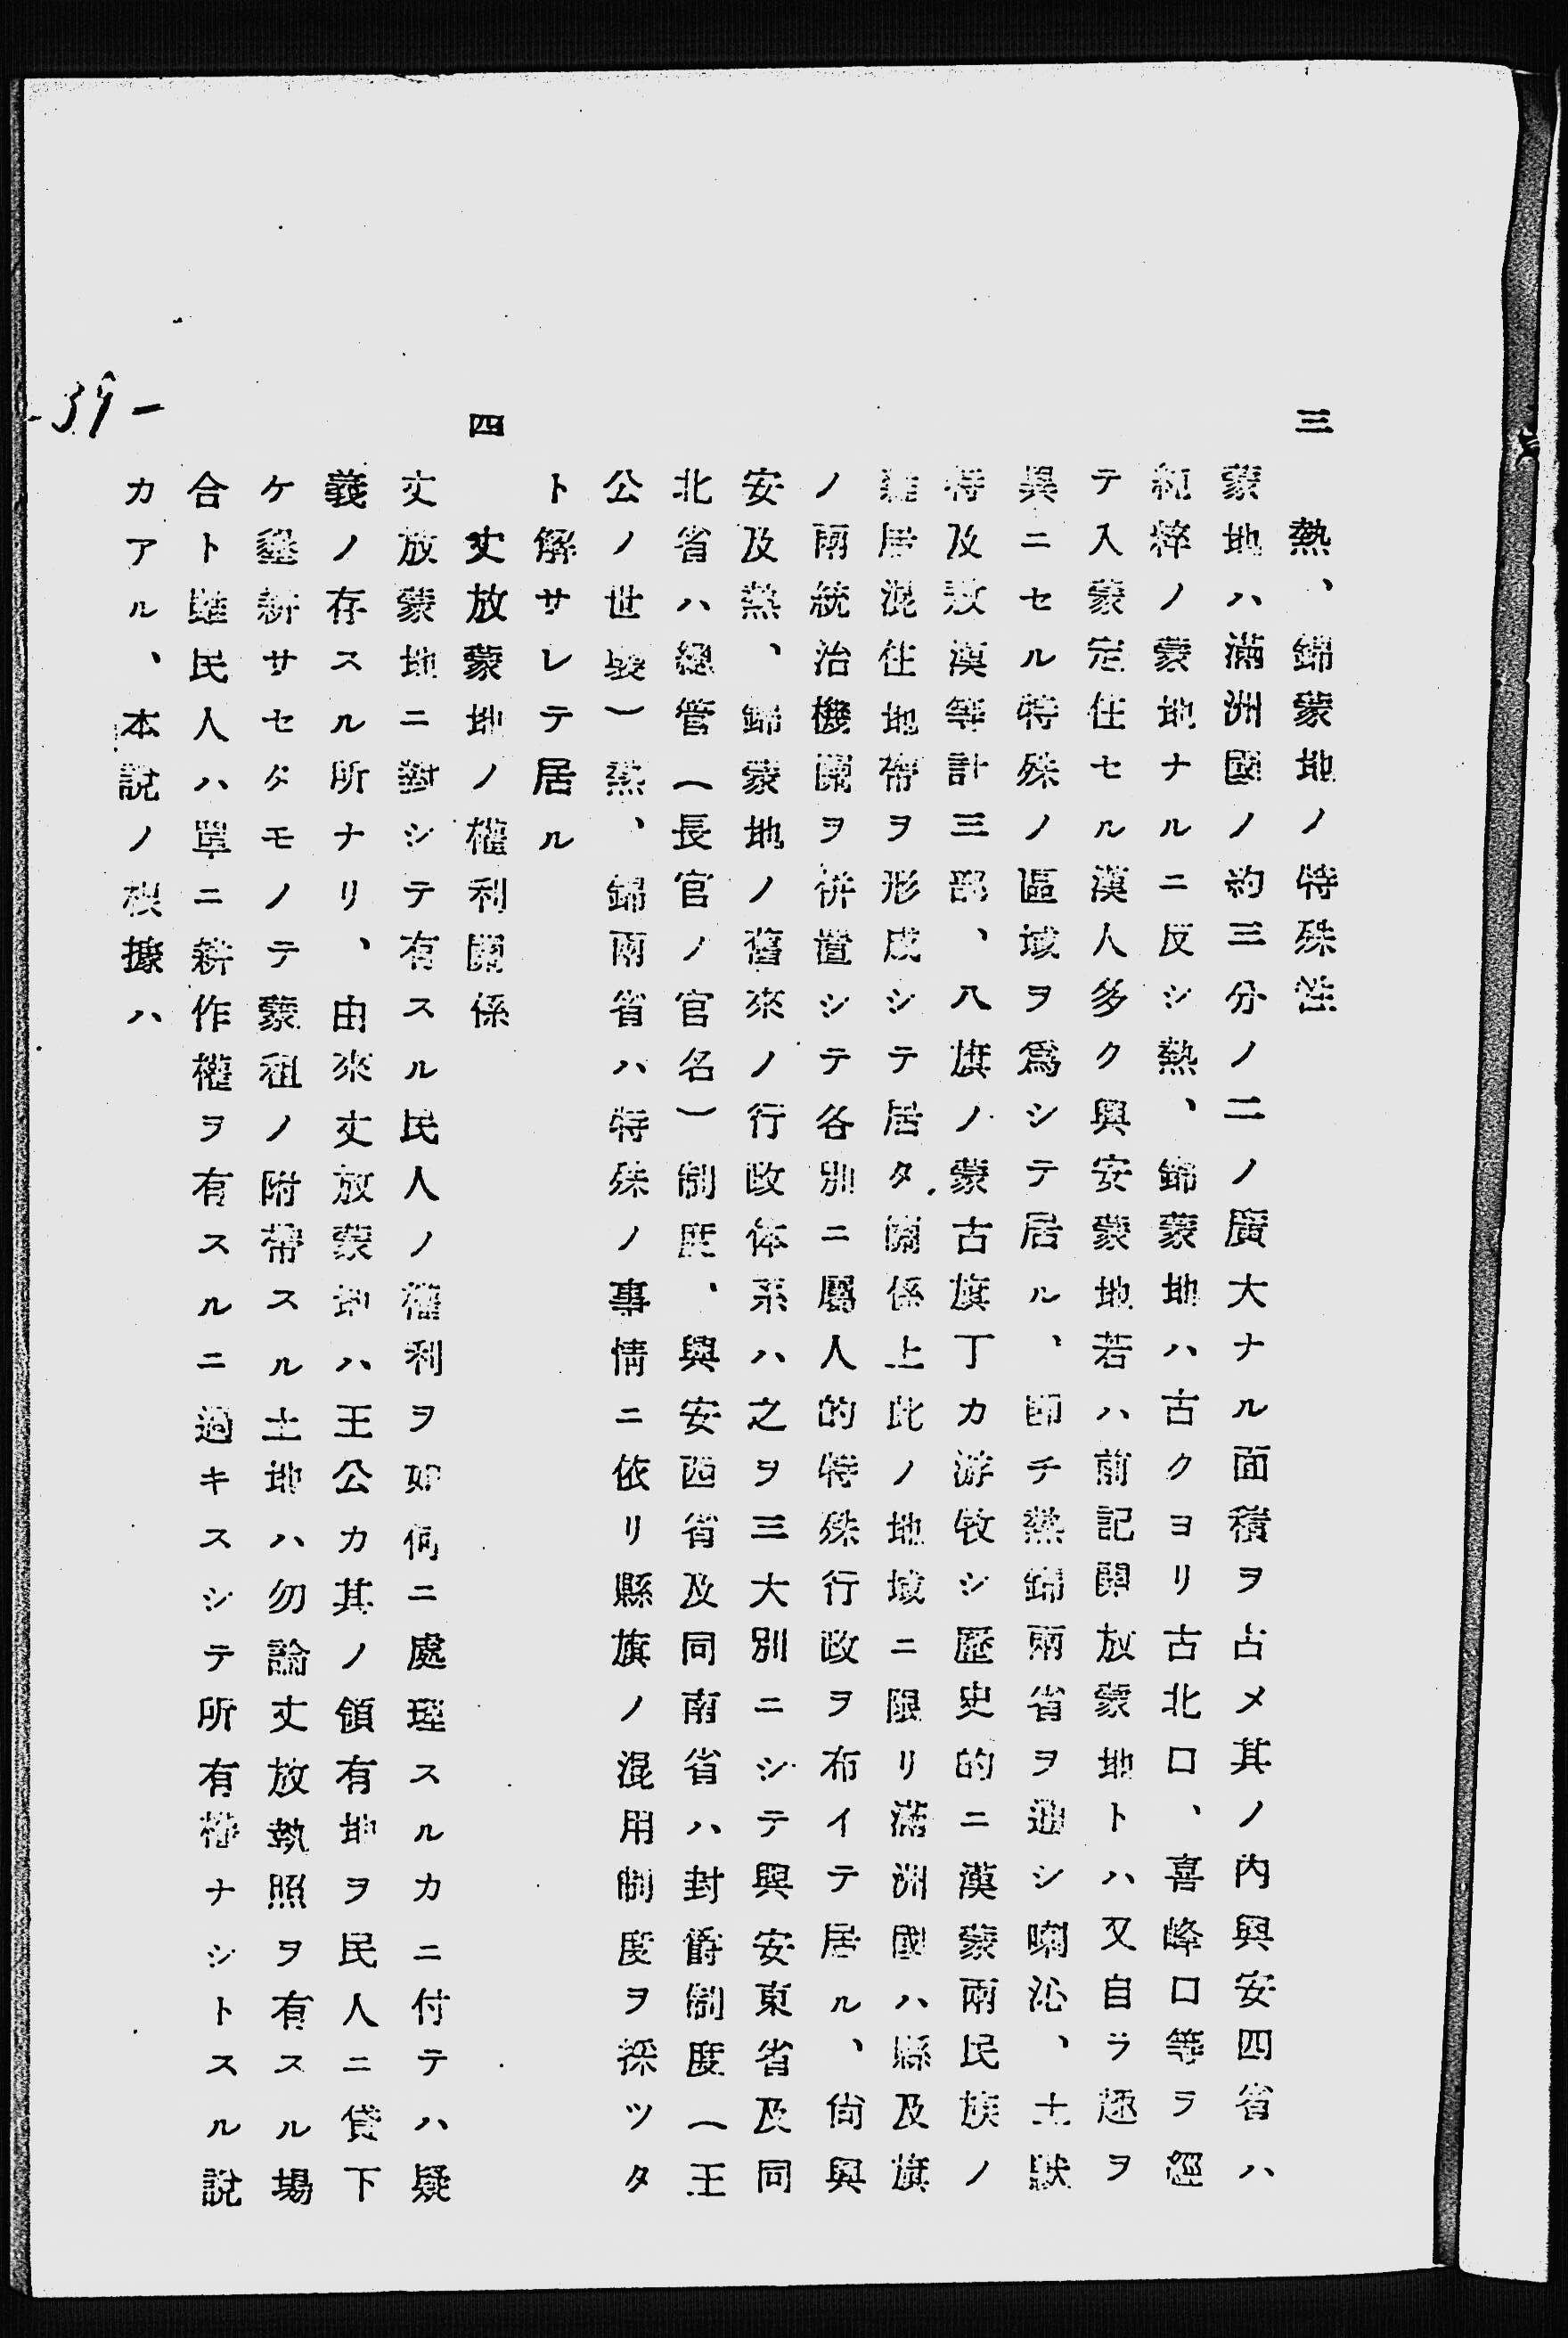 三　熱、錦蒙地ノ特殊性
蒙地ハ滿洲國ノ約三分ノ二ノ廣大ナル面積ヲ占メ其ノ内興安四省ハ
純粹ノ蒙地ナルニ反シ熱、錦蒙地ハ古クヨリ古北口、喜峰口等ヲ經
テ入蒙定住セル漢人多ク興安蒙地若ハ前記開放蒙地トハ又自ラ趣ヲ
異ニセル特殊ノ區域ヲ爲シテ居ル、卽チ熱錦兩省ヲ通シ喇沁、土默
特及敖漢等計三部、八旗ノ蒙古旗丁カ游牧シ歷史的ニ漢蒙兩民族ノ
雜居混住地帶ヲ形成シテ居タ關係上此ノ地域ニ限リ滿洲國ハ縣及旗
ノ兩統治機關ヲ併置シテ各別ニ屬人的特殊行政ヲ布イテ居ル、尙興
安及熱、錦蒙地ノ舊來ノ行政体系ハ之ヲ三大別ニシテ興安東省及同
北省ハ總管（長官ノ官名）制度、興安西省及同南省ハ封爵制度（王
公ノ世襲）熱、錦兩省ハ特殊ノ事情ニ依リ縣旗ノ混用制度ヲ採ツタ
ト解サレテ居ル
四　丈放蒙地ノ權利關係
丈放蒙地ニ對シテ有スル民人ノ權利ヲ如何ニ處理スルカニ付テハ疑
義ノ存スル所ナリ、由來丈放蒙地ハ王公カ其ノ領有地ヲ民人ニ貸下
ケ墾耕サセタモノテ蒙租ノ附帶スル土地ハ勿論丈放執照ヲ有スル場
合ト雖民人ハ單ニ耕作權ヲ有スルニ過キスシテ所有權ナシトスル說
カアル、本說ノ根據ハ
-39-